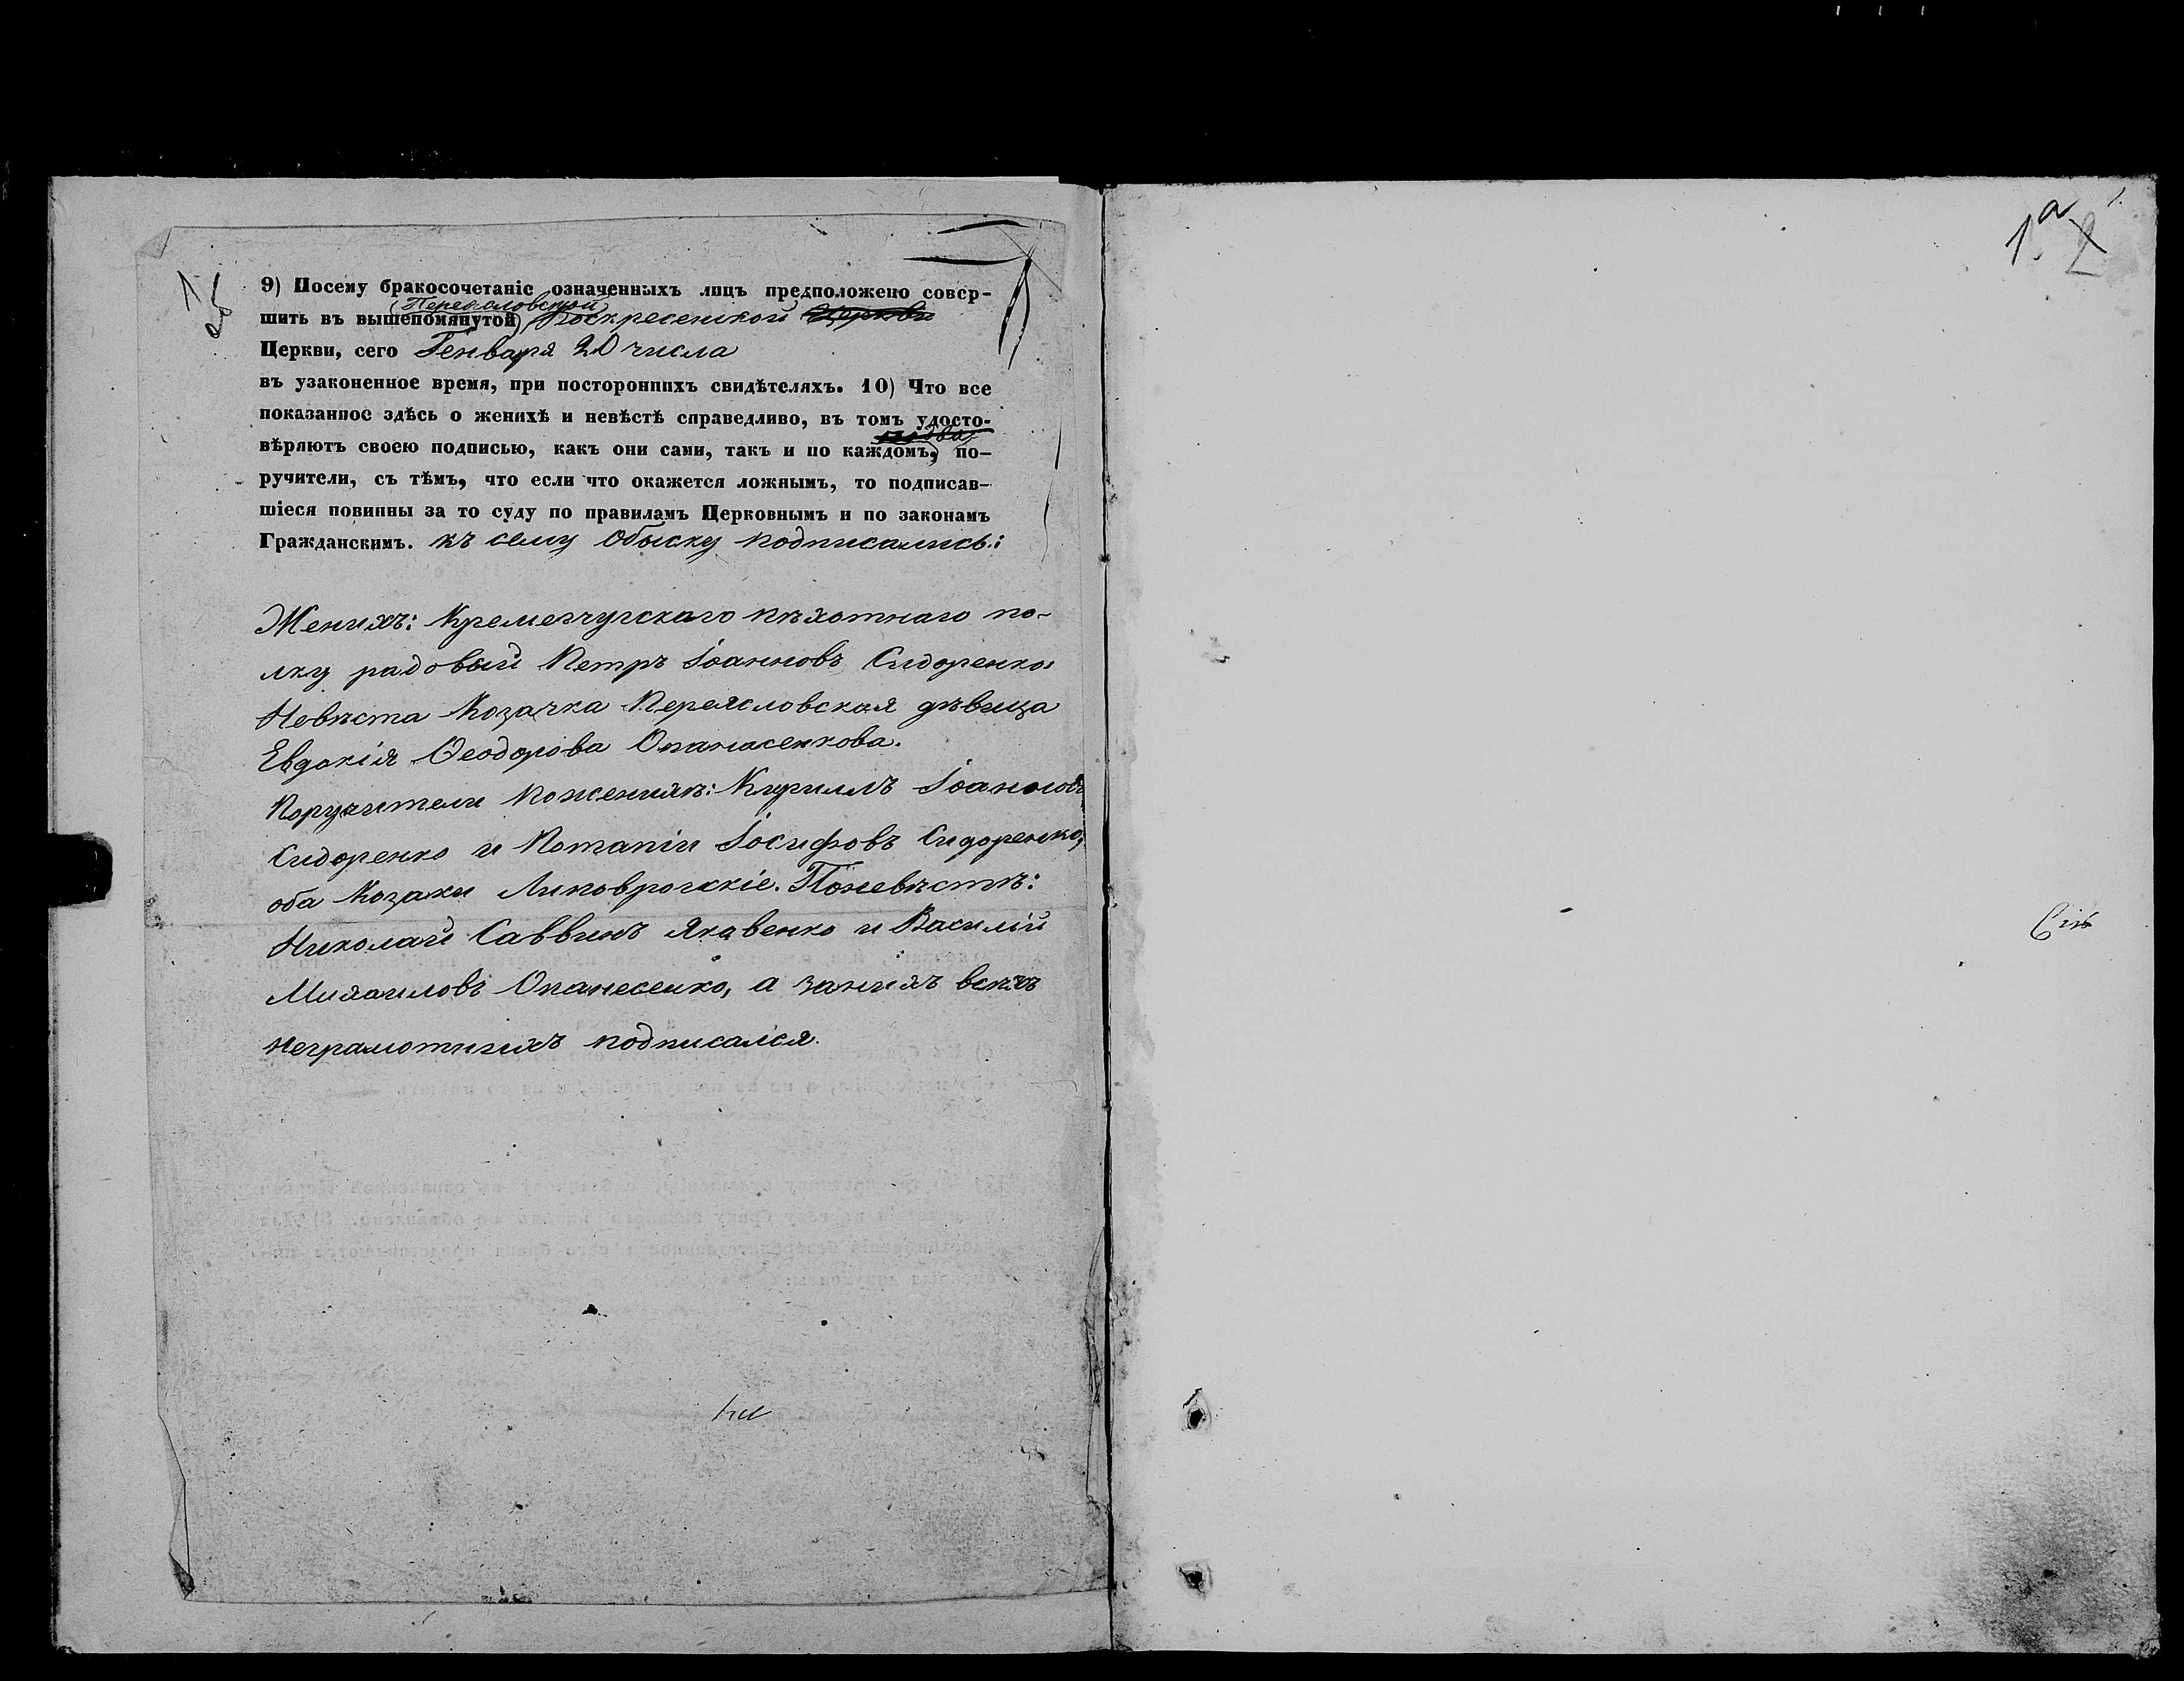 9) Посему бракосочетаніе означенныхъ лицъ предположено совер-
(Переясловской
шить въ вышепомянутой) Воскресенской Церкви
Церкви, сего Генваря 20 числа
въ узаконенное время, при постороннихъ свидѣтеляхъ. 10) Что все
показанное здѣсь о женихѣ и невѣстѣ справедливо, въ томъ удосто-
два
вѣряютъ своею подписью, какъ они сами, такъ и по каждомъ, по-
ручители, съ тѣмъ, что если что окажется ложнымъ, то подписав-
шіеся повинны за то суду по правиламъ Церковнымъ и по законамъ
Гражданскимъ. къ сему обыску подписались:
Женихъ: Кременчугскаго пѣхотнаго по-
лку радовый Петръ Іоанновъ Сидоренко
Невѣста Козачка Переясловская дѣвица
Евдокія Ѳеодорова Опанасенкова.
Поручители Поженихѣ: Кириллъ Іоанновъ
Сидоренко и Потапій Іосифовъ Сидоренко,
оба Козаки Липоврогскіе. Поневѣстѣ:
Николай Саввинъ Яковенко и Василій
Михаиловъ Опанесенко, а занихъ всѣхъ
неграмотныхъ подписался.
1а
2